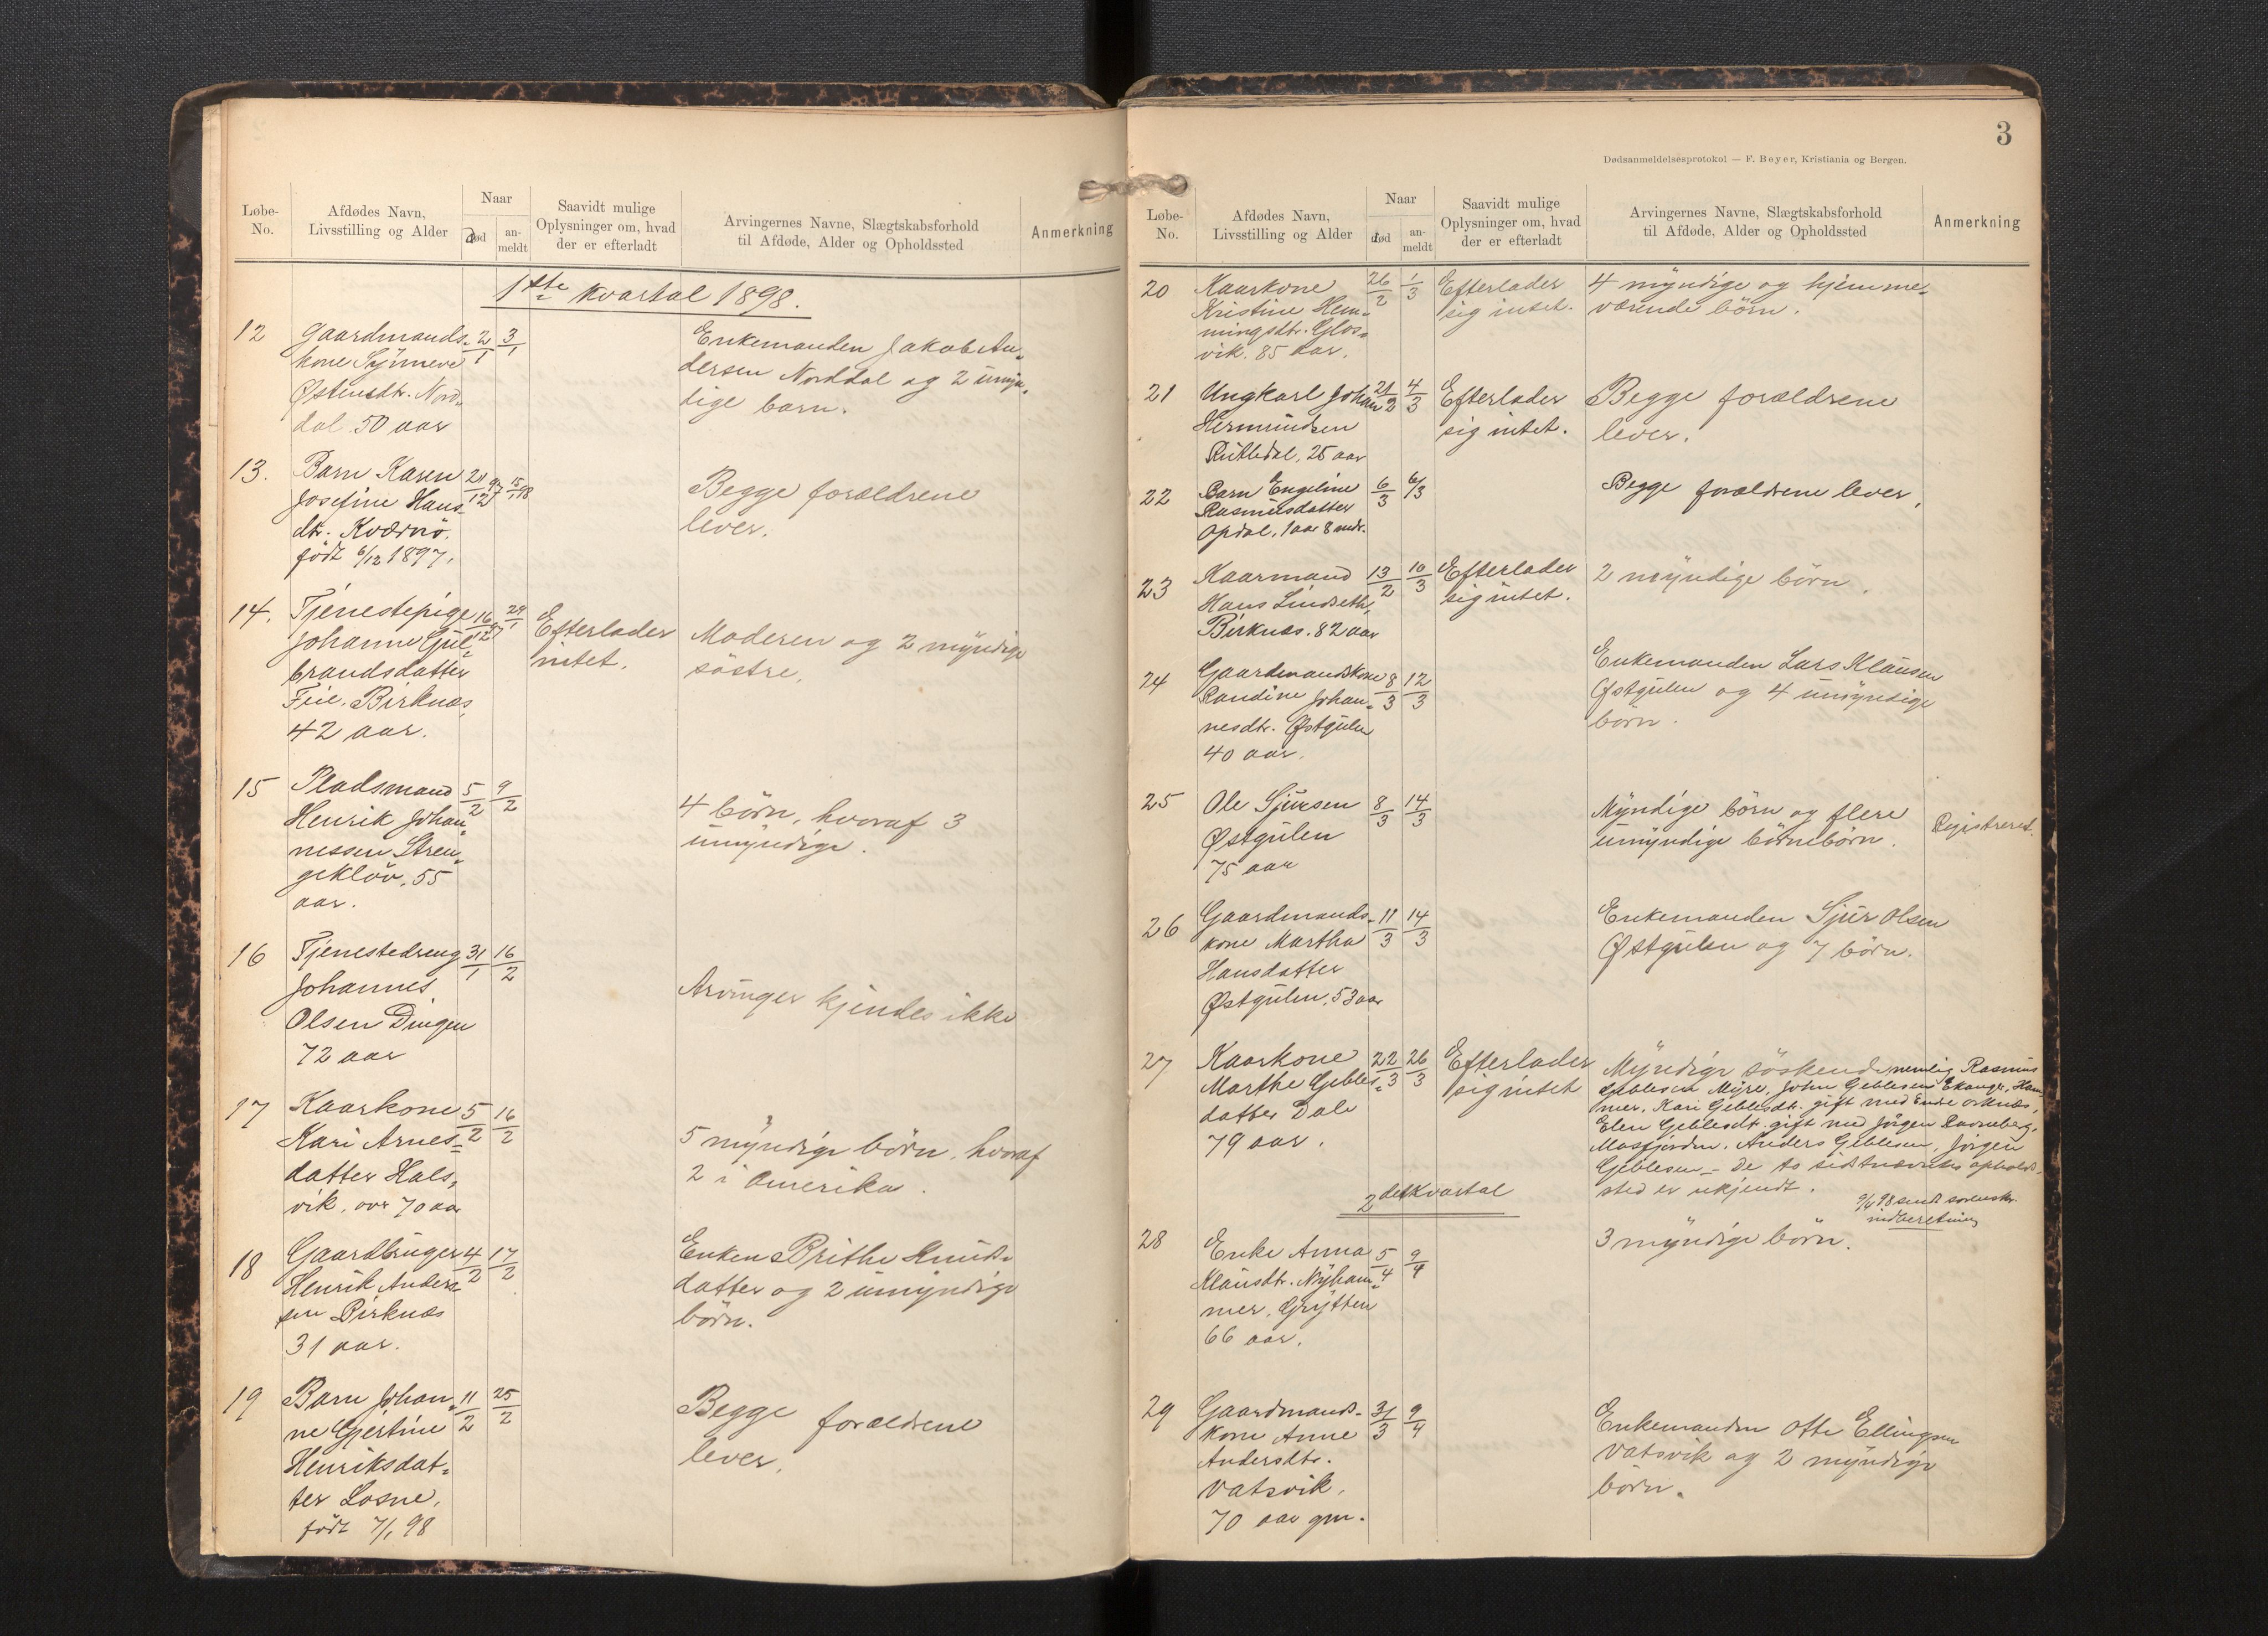 Løbe-No.
Afdødes Navn, Livsstilling og Alder
Naar
død
an-meldt
Saavidt mulige Oplysninger om, hvad der er efterladt
Arvingernes Navne, Slægtskabsforhold til Afdøde, Alder og Opholdssted
Anmerkning
1ste kvartal 1898.
12
Gaardmands-
kone Synneve
Østensdtr. Nord-
dal 50 aar
2/1
3/1
Enkemanden Jakob An-
dersen Norddal og 2 umyn-
dige barn.
13.
Barn Karen
Josefine Hans-
dtr. Kværnø.
født 6/12 1897.
21/12 97
15/1 98
Begge forældrene
lever.
14.
Tjenestepige
Johanne Gul-
brandsdatter
Feie, Birknæs,
42 aar.
16/12 97
29/1
Efterlader
intet.
Moderen og 2 myndige
søstre.
15
Pladsmand
Henrik Johan-
nessen Stren-
gekløv, 55
aar.
5/2
9/2
4 børn, hvoraf 3
umyndige.
16
Tjenestedreng
Johannes
Olsen Dingen
72 aar
31/1
16/2
Arvinger kjendes ikke
17
Kaarkone
Kari Arnes-
datter Hals-
vik, over 70 aar
5/2
16/2
5 myndige børn, hvoraf
2 i Amerika.
18
Gaardbruger
Henrik Ander-
sen Birknæs
31 aar.
4/2
17/2
Enken Brithe Knuds-
datter og 2 umyndige
børn.
19
Barn Johan-
ne Gjertine
Henriksdat-
ter Losne,
født 7/1 98
11/2
25/2
Begge forældrene
lever.
3
Dødsanmeldelsesprotokol — F. Beyer, Kristiania og Bergen.
Løbe-No.
Afdødes Navn, Livsstilling og Alder
Naar
død
an-meldt
Saavidt mulige Oplysninger om, hvad der er efterladt
Arvingernes Navne, Slægtskabsforhold til Afdøde, Alder og Opholdssted
Anmerkning
20
Kaarkone
Kristine Hem-
mingsdtr. Glos-
vik. 85 aar.
26/2
1/3
Efterlader
sig intet.
4 myndige og hjemme-
værende børn.
21
Ungkarl Johan
Hermundsen
Rutledal, 25 aar
21/2
4/3
Efterlader
sig intet.
Begge forældrene
lever.
22
Barn Engeline
Rasmusdatter
Opdal. 1 aar 8 mdr.
6/3
6/3
Begge forældrene lever.
23
Kaarmand
Hans Lindseth,
Birknæs. 82 aar
13/2
10/3
Efterlader
sig intet.
2 myndige børn.
24
Gaardmandskone
Randine Johan-
nesdtr. Østgulen
40 aar.
8/3
12/3
Enkemanden Lars Klausen
Østgulen og 4 umyndige
børn.
25
Ole Sjursen
Østgulen
75 aar
8/3
14/3
Myndige børn og flere
umyndige børnebørn.
Registreret.
26
Gaardmands-
kone Martha
Hansdatter
Østgulen, 53 aar
11/3
14/3
Enkemanden Sjur Olsen
Østgulen og 7 børn.
27
Kaarkone
Marthe Gebles-
datter Dale
79 aar.
22/3
26/3
Efterlader
sig intet
Myndige søskende nemlig Rasmus
Geblesen Myre, John Geblesen Ekanger, Ham-
mer, Kari Geblesdtr. gift med Endre
Elen Geblesdtr. gift med Jørgen
Masfjorden, Anders Geblesen, Jørgen
Geblesen – de to sidstnævntes opholds-
sted er ukjendt.
9/4 98 sendt sorenskr.
indberetning
2det kvartal
28
Enke Anna
Klausdtr. Nyham-
mer, Grytten
66 aar.
5/4
9/4
3 myndige børn.
29
Gaardmands-
kone Anne
Andersdtr.
Vatsvik,
70 aar gm.
31/3
9/4
Enkemanden Otte Ellingsen
Vatsvik og 2 myndige
børn.